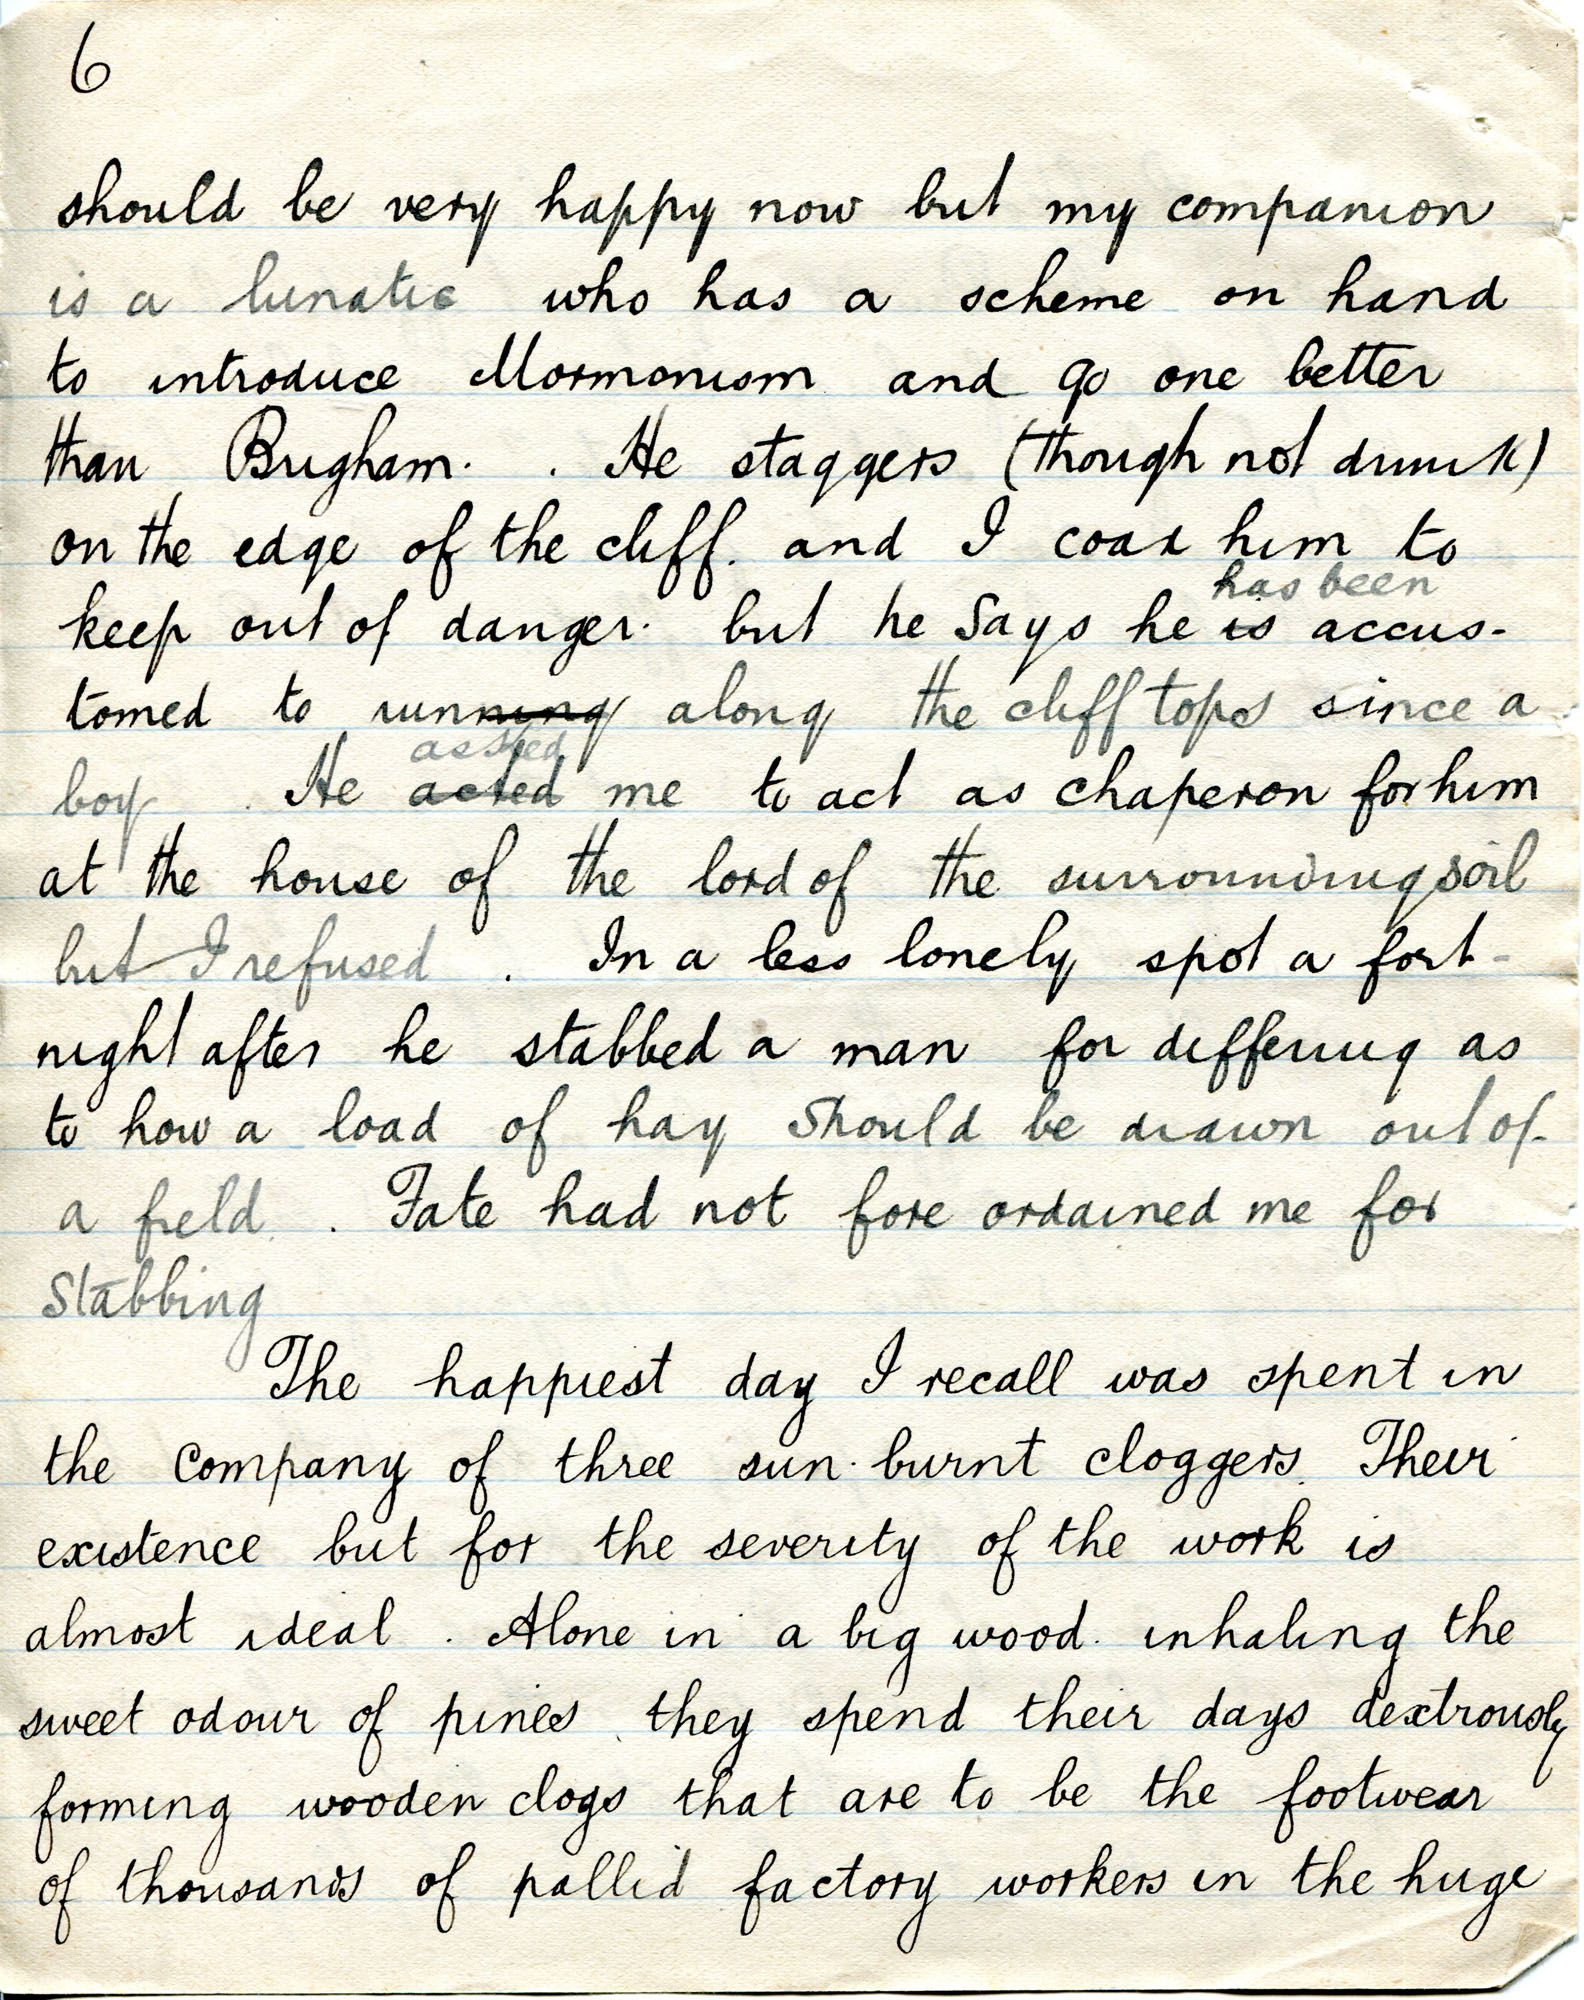 6
should be very happy now but my companion
is a lunatic who has a scheme on hand
to introduce Mormonism and go one better
than Brigham. . He staggers (though not drunk)
on the edge of the cliff. and I coax him to
has been
keep out of danger. but he says he is accus-
tomed to running along the cliff tops since a
asked
boy . He acted me to act as chaperon for him
at the house of the lord of the surrounding soil
but I refused . In a less lonely spot a fort-
night after he stabbed a man for differing as
to how a load of hay should be drawn out of
a field. . Fate had not fore ordained me for
Stabbing
The happiest day I recall was spent in
the company of three sun. burnt cloggers. Their
existence but for the severity of the work is
almost ideal . Alone in a big wood. inhaling the
sweet odour of pines they spend their days dextrously
forming wooden clogs that are to be the footwear
of thousands of pallid factory workers in the huge